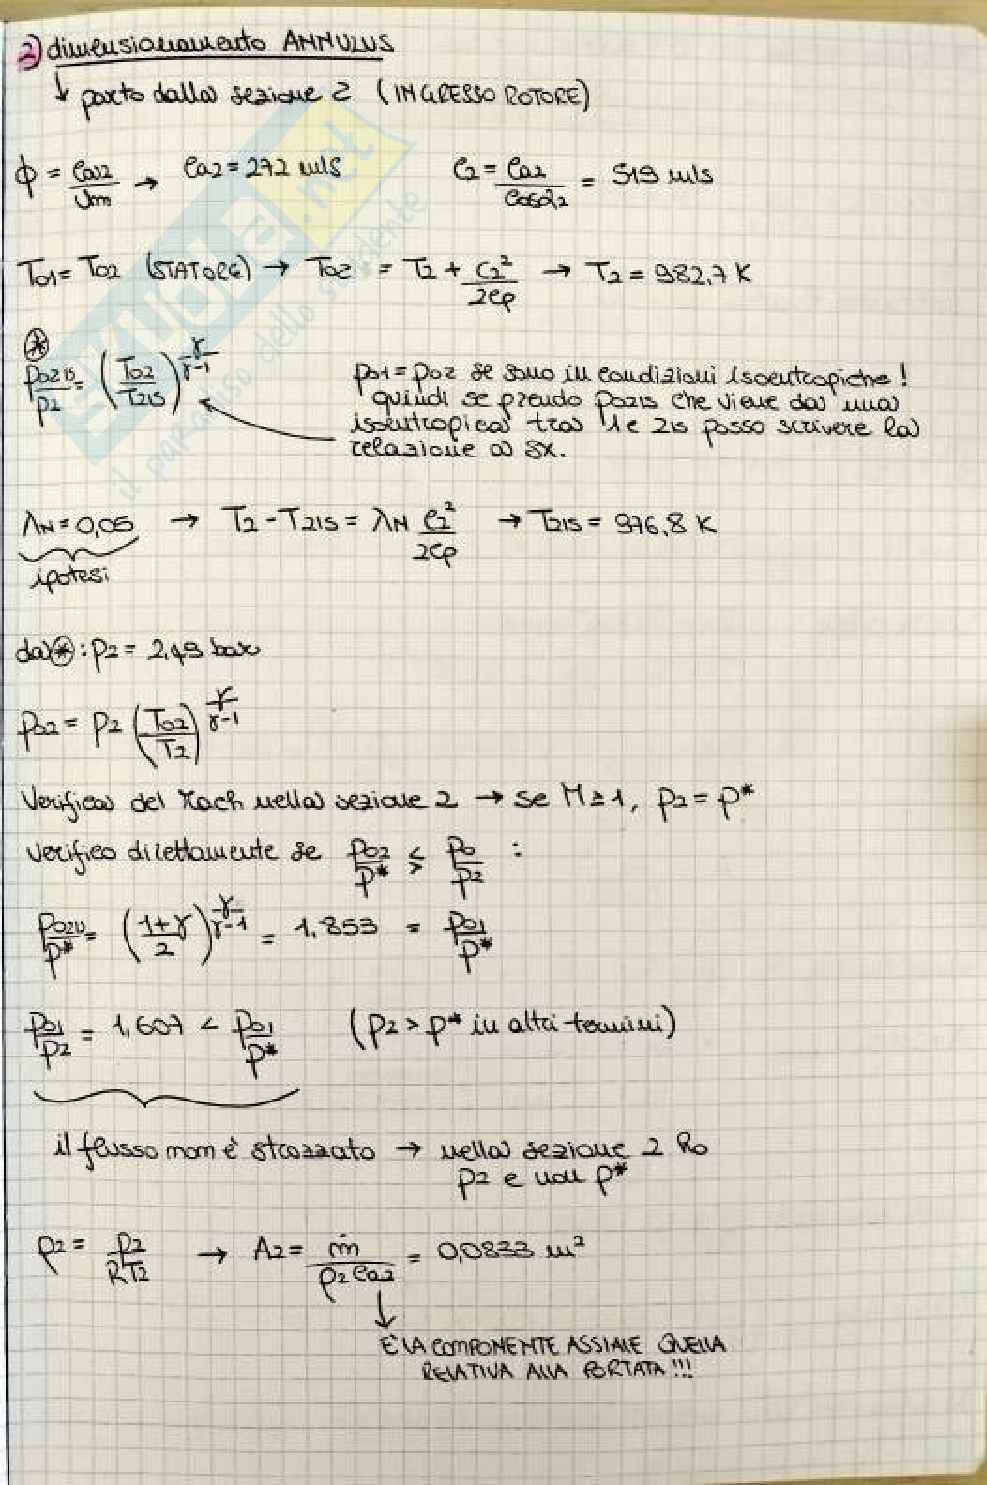 2) dimensionamento ANNULUS
↳ parto dalla sezione 2 (INGRESSO ROTORE)
ϕ = Ca2/Um → Ca2 = 272 m/s C2 = Ca2/cosα2 = 519 m/s
T01 = T02 (STATORE) → T02 = T2 + C2²/2cp → T2 = 982,7 K
⊛
p02is/p2 = (T02/T2is)^(γ/γ-1)
p01 = p02 se sono in condizioni isoentropiche!
quindi se prendo p02is che viene da una
isoentropica tra 1 e 2is posso scrivere la
relazione a sx.
λN = 0,05 → T2 - T2is = λN C2²/2cp → T2is = 976,8 K
ipotesi
da ⊛ : p2 = 2,49 bar
p02 = p2 (T02/T2)^(γ/γ-1)
Verifica del Mach nella sezione 2 → se M ≥ 1, p2 = p*
verifico direttamente se p02/p* ≶ p0/p2 :
p02is/p* = (1+γ/2)^(γ/γ-1) = 1.853 = p01/p*
p01/p2 = 1,607 < p01/p* (p2 > p* in altri termini)
il flusso non è strozzato → nella sezione 2 ho
p2 e non p*
ρ2 = p2/RT2 → A2 = ṁ/ρ2 Ca2 = 0,0833 m²
È LA COMPONENTE ASSIALE QUELLA
RELATIVA ALLA PORTATA!!!
skuola.net
il paradiso dello studente